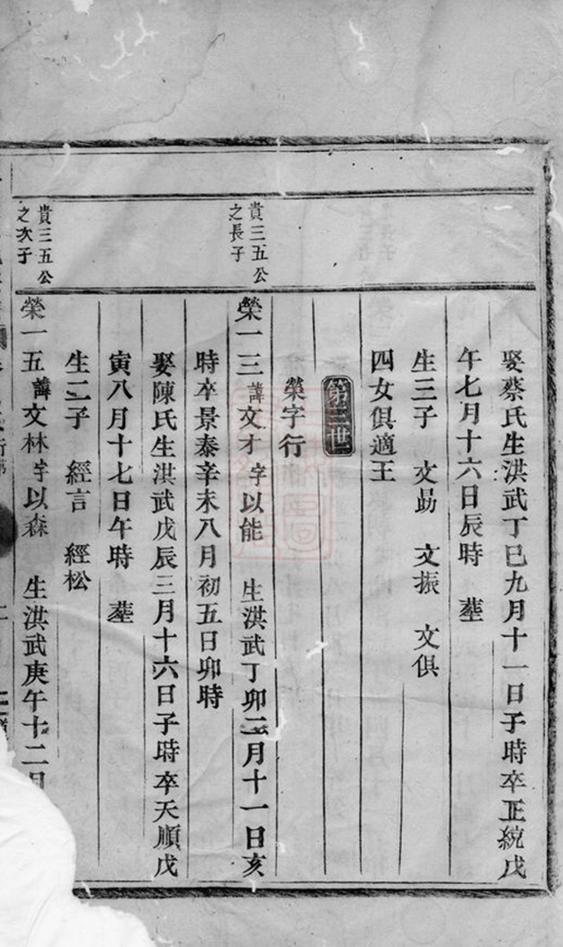 娶蔡氏生洪武丁巳九月十一日子時卒正統戊
午七月十六日辰時 塟
生三子 文勗 文振 文俱
四女俱適王
第三世
榮字行
貴三五公
之長子
榮一三諱文才字以能 生洪武丁卯二月十一日亥
時卒景泰辛未八月初五日卯時
娶陳氏生洪武戊辰三月十六日子時卒天順戊
寅八月十七日午時 塟
生二子 經言 經松
貴三五公
之次子
榮一五諱文林字以森 生洪武庚午十二月